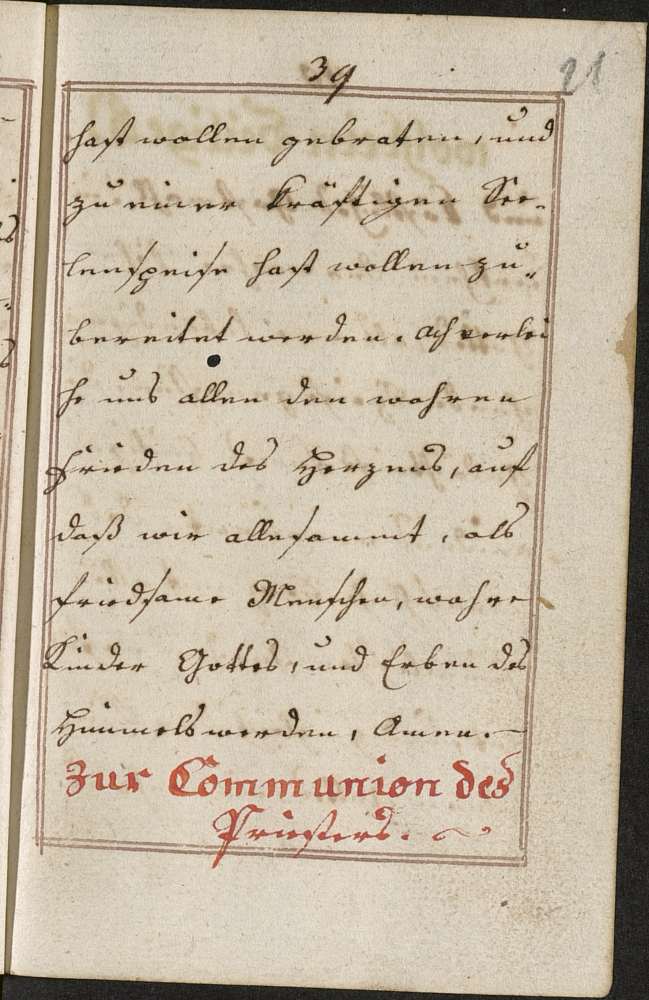 39
21
hast wollen gebraten, und
zu einer kräftigen See-
lenspeise hast wollen zu-
bereitet werden. Ach verlei
he uns allen den wahren
Frieden des Herzens, auf
daß wir allesammt, als
friedsame Menschen, wahre
Kinder Gottes, und Erben des
Himmels werden, Amen.
Zur Communion des
Priesters.